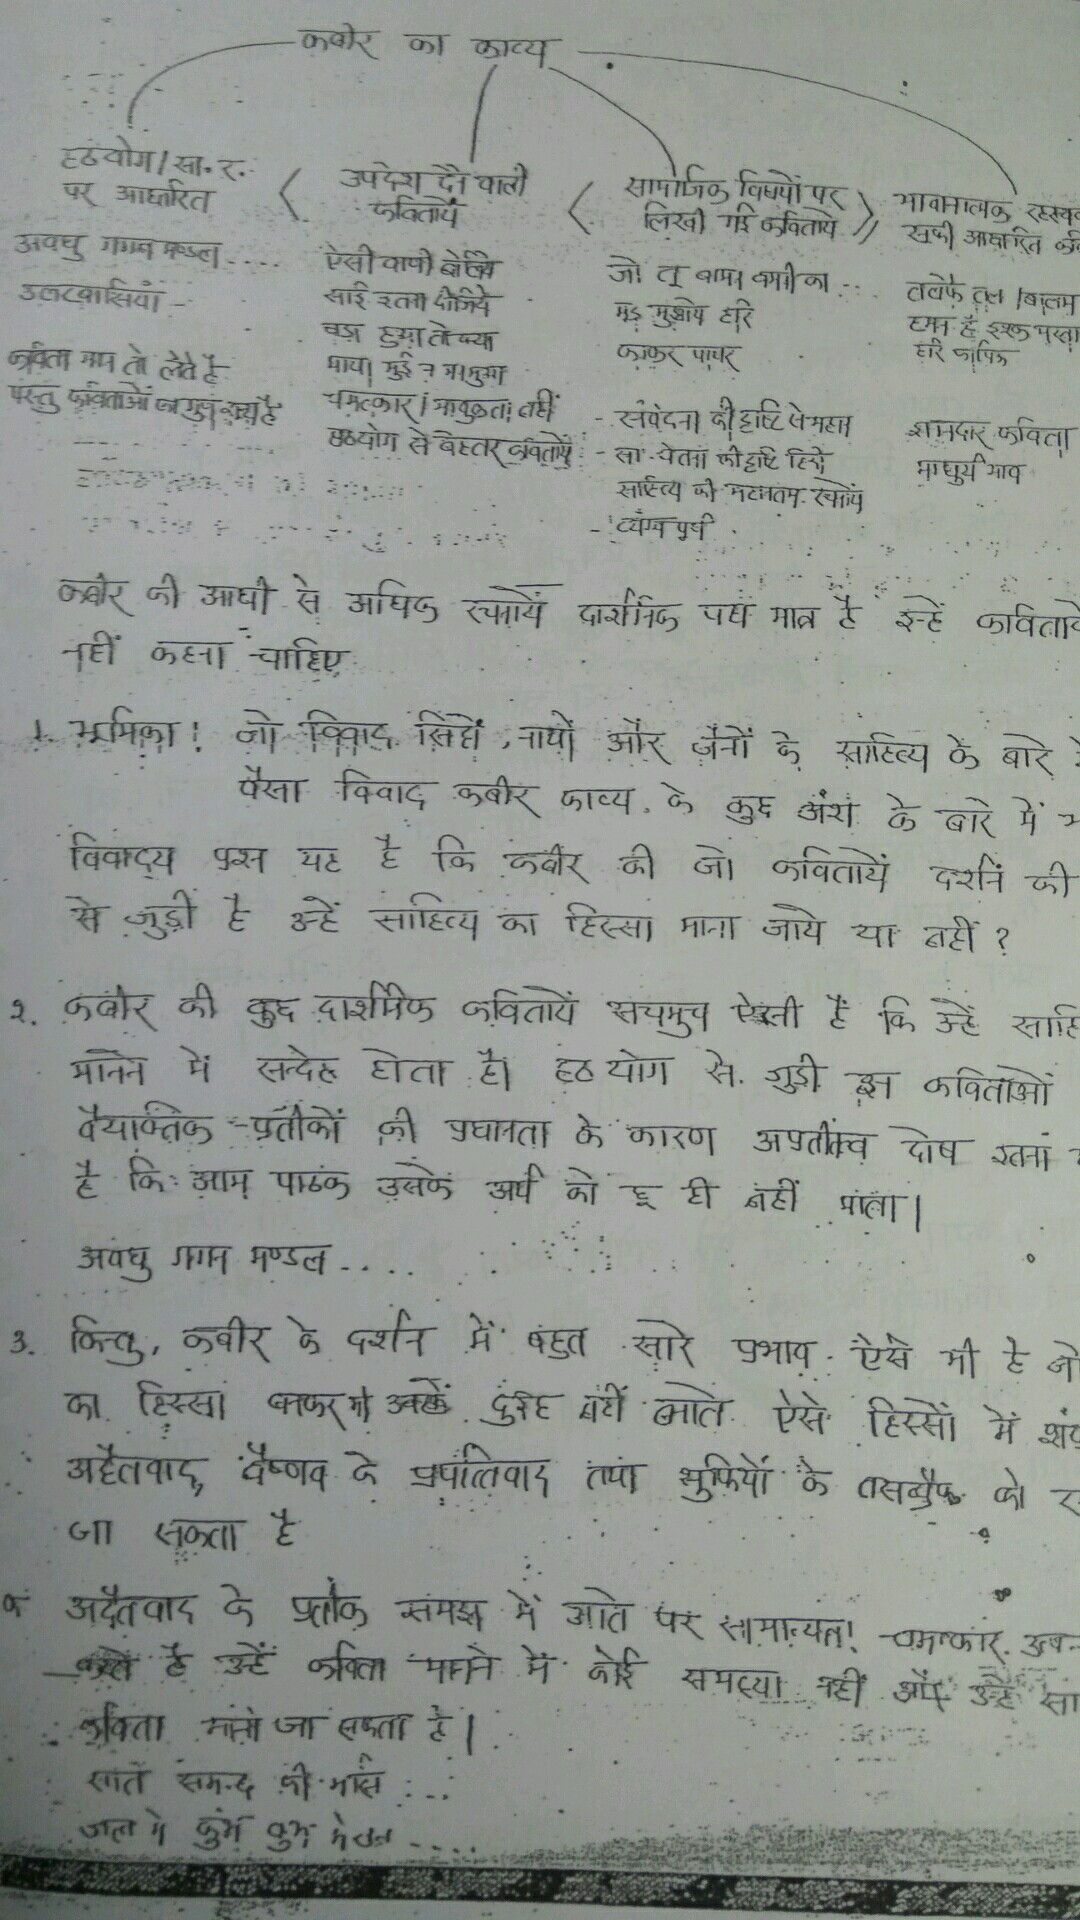 कबीर का काव्य
हठयोग/सा.र. पर आधारित
उपदेश देने वाली कवितायें
सामाजिक विषयों पर लिखी गई कवितायें
भावनात्मक रहस्य सूफी आधारित
अवधु गगन मण्डल....
उलटवासियां -
कविता मान तो लेते है
परन्तु कविताओं का मूल्य है
ऐसी वाणी बोलिये
साई इतना दीजिये
बड़ा हुआ तो क्या
माया मुई न मन मुआ
चमत्कार/भावुकता नहीं
हठयोग से बेहतर कवितायें
जो तू बामन बमनी का...
मूड़ मुड़ाये हरि
कांकर पाथर
- संवेदना की दृष्टि से महान
- सा. चेतना की दृष्टि हिन्दी
साहित्य की महानतम रचनायें
- व्यंग्य पूर्ण
तलफै बालम
हमन है इश्क मस्ता
हरि
शानदार कविता
माधुर्य भाव
कबीर की आधी से अधिक रचनायें दार्शनिक पद्य मात्र है इन्हें कवितायें
नहीं कहना चाहिए
1. भूमिका: जो विवाद सिद्धों, नाथों और जैनों के साहित्य के बारे
वैसा विवाद कबीर काव्य के कुछ अंश के बारे में
विवाद्य प्रश्न यह है कि कबीर की जो कवितायें दर्शन की
से जुड़ी है उन्हें साहित्य का हिस्सा माना जाये या नहीं?
2. कबीर की कुछ दार्शनिक कवितायें सचमुच ऐसी हैं कि उन्हें
मानने में सन्देह होता है। हठ योग से जुड़ी इन कविताओं
वैयक्तिक प्रतीकों की प्रधानता के कारण अप्रतीत्व दोष इतना
है कि आम पाठक उसके अर्थ को छू ही नहीं पाता।
अवधु गगन मण्डल....
3. किन्तु, कबीर के दर्शन में बहुत सारे प्रभाव ऐसे भी है जो
का हिस्सा बनकर भी उन्हें दुरूह नहीं बनाते ऐसे हिस्सों में
अद्वैतवाद, वैष्णव के प्रपत्तिवाद तथा सूफियों के तसव्वुफ को
जा सकता है
अद्वैतवाद के प्रतीक समझ में आते पर सामान्यत: चमत्कार
करते है उन्हें कविता मानने में कोई समस्या नहीं और उन्हें
कविता माना जा सकता है।
सात समन्द की मसि....
जल मे कुंभ कुंभ मे जल....